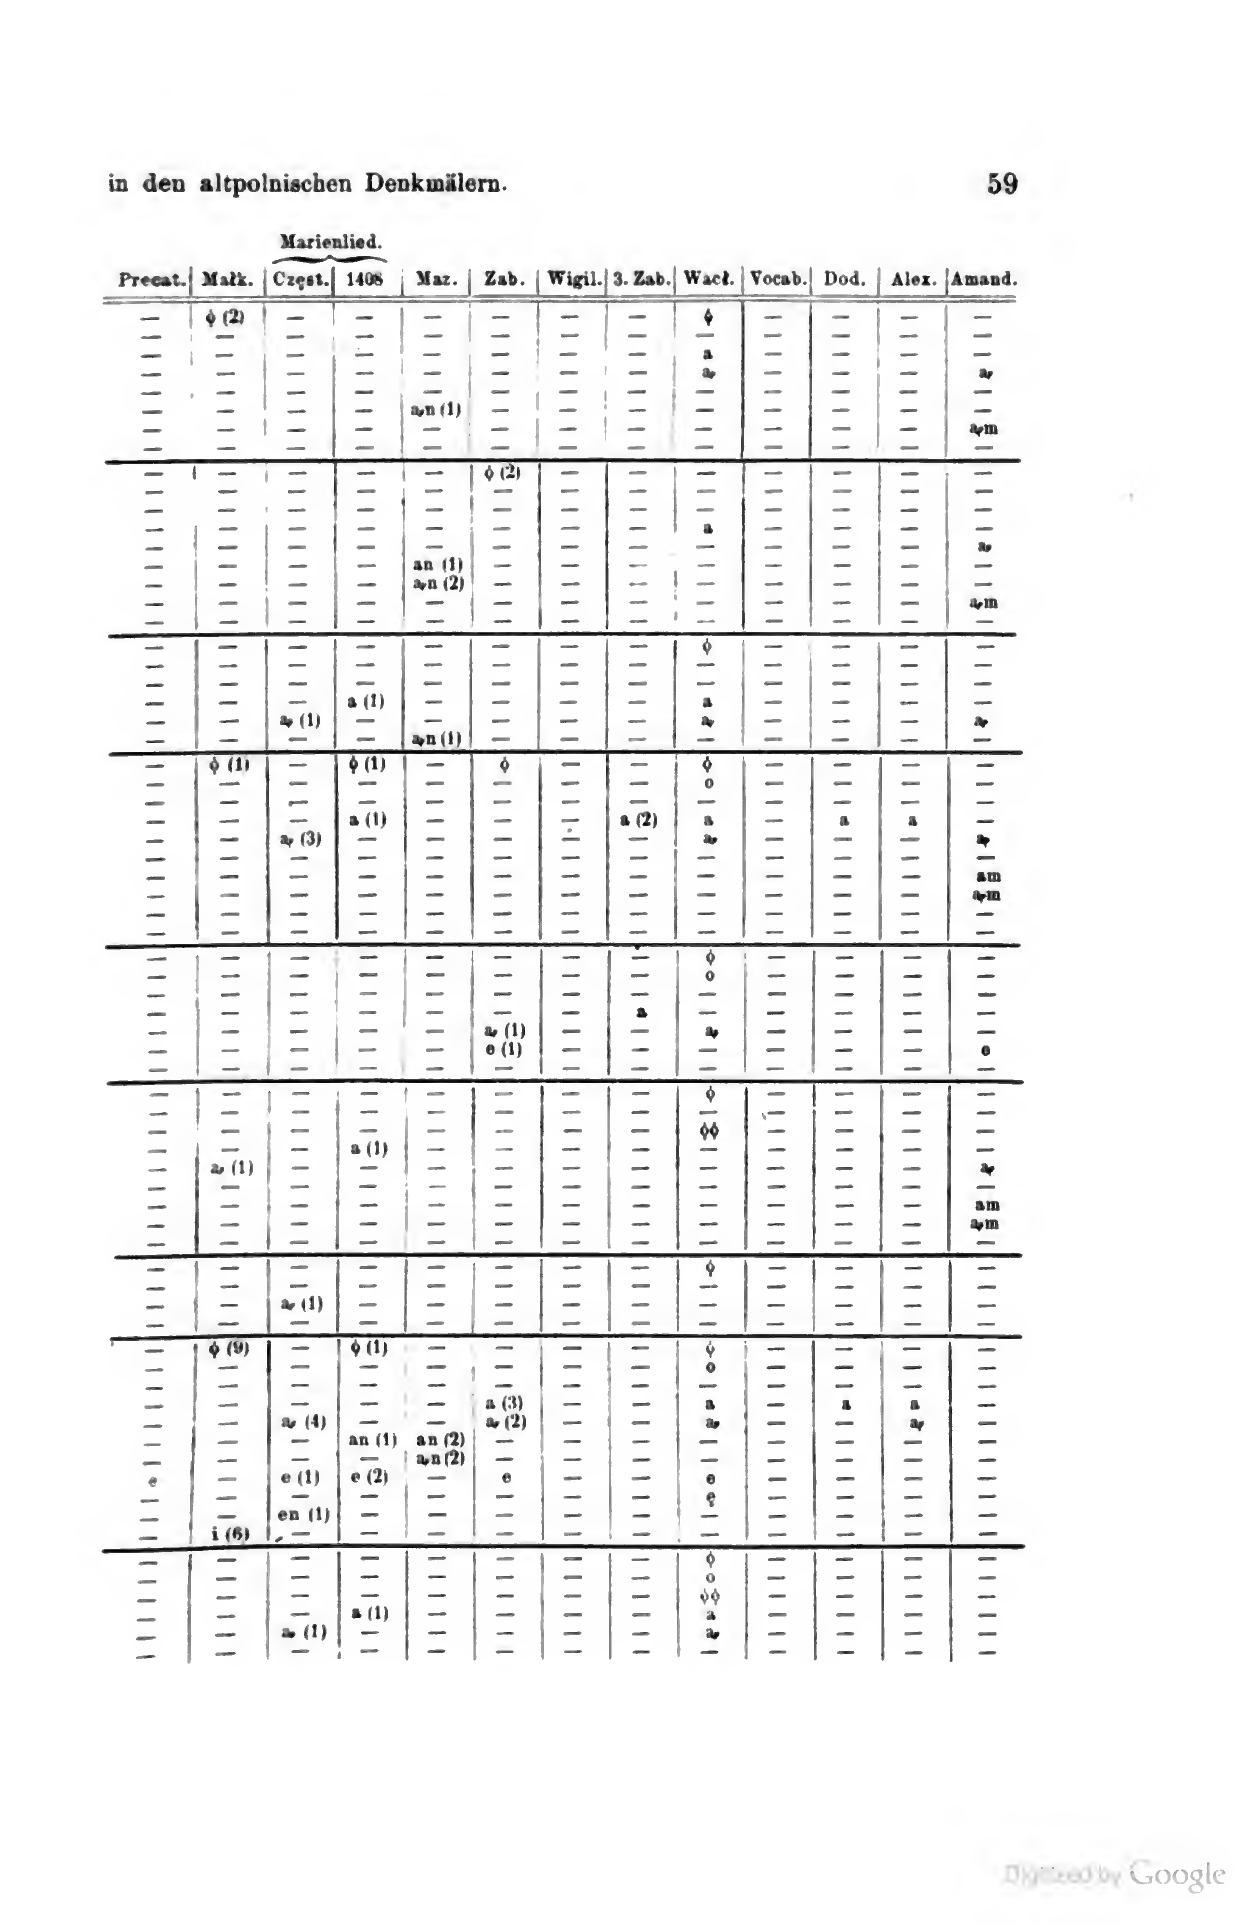 in den altpolnischen Denkmälern. 59
Marienlied.
Precat. | Małk. | Częst. | 1408 | Maz. | Zab. | Wigil. | 3. Zab. | Wacł. | Vocab. | Dod. | Alex. | Amand.
— | ϕ (2) | — | — | — | — | — | — | ϕ | — | — | — | —
— | — | — | — | — | — | — | — | — | — | — | — | —
— | — | — | — | — | — | — | — | a | — | — | — | —
— | — | — | — | — | — | — | — | ą | — | — | — | ą
— | — | — | — | — | — | — | — | — | — | — | — | —
— | — | — | — | ąn (1) | — | — | — | — | — | — | — | —
— | — | — | — | — | — | — | — | — | — | — | — | ąm
— | — | — | — | — | — | — | — | — | — | — | — | —
— | — | — | — | — | ϕ (2) | — | — | — | — | — | — | —
— | — | — | — | — | — | — | — | — | — | — | — | —
— | — | — | — | — | — | — | — | — | — | — | — | —
— | — | — | — | — | — | — | — | a | — | — | — | —
— | — | — | — | — | — | — | — | — | — | — | — | ą
— | — | — | — | an (1) | — | — | — | — | — | — | — | —
— | — | — | — | ąn (2) | — | — | — | — | — | — | — | —
— | — | — | — | — | — | — | — | — | — | — | — | ąm
— | — | — | — | — | — | — | — | — | — | — | — | —
— | — | — | — | — | — | — | — | ϕ | — | — | — | —
— | — | — | — | — | — | — | — | — | — | — | — | —
— | — | — | — | — | — | — | — | — | — | — | — | —
— | — | — | a (1) | — | — | — | — | a | — | — | — | —
— | — | ą (1) | — | — | — | — | — | ą | — | — | — | ą
— | — | — | — | ąn (1) | — | — | — | — | — | — | — | —
— | ϕ (1) | — | ϕ (1) | — | ϕ | — | — | ϕ | — | — | — | —
— | — | — | — | — | — | — | — | o | — | — | — | —
— | — | — | — | — | — | — | — | — | — | — | — | —
— | — | — | a (1) | — | — | — | a (2) | a | — | a | a | —
— | — | ą (3) | — | — | — | — | — | ą | — | — | — | ą
— | — | — | — | — | — | — | — | — | — | — | — | —
— | — | — | — | — | — | — | — | — | — | — | — | am
— | — | — | — | — | — | — | — | — | — | — | — | ąm
— | — | — | — | — | — | — | — | — | — | — | — | —
— | — | — | — | — | — | — | — | — | — | — | — | —
— | — | — | — | — | — | — | — | ϕ | — | — | — | —
— | — | — | — | — | — | — | — | o | — | — | — | —
— | — | — | — | — | — | — | — | — | — | — | — | —
— | — | — | — | — | — | — | a | — | — | — | — | —
— | — | — | — | — | ą (1) | — | — | ą | — | — | — | —
— | — | — | — | — | e (1) | — | — | — | — | — | — | e
— | — | — | — | — | — | — | — | — | — | — | — | —
— | — | — | — | — | — | — | — | ϕ | — | — | — | —
— | — | — | — | — | — | — | — | — | — | — | — | —
— | — | — | — | — | — | — | — | ϕϕ | — | — | — | —
— | — | — | a (1) | — | — | — | — | — | — | — | — | —
— | ą (1) | — | — | — | — | — | — | — | — | — | — | ą
— | — | — | — | — | — | — | — | — | — | — | — | —
— | — | — | — | — | — | — | — | — | — | — | — | am
— | — | — | — | — | — | — | — | — | — | — | — | ąm
— | — | — | — | — | — | — | — | — | — | — | — | —
— | — | — | — | — | — | — | — | ϕ | — | — | — | —
— | — | — | — | — | — | — | — | — | — | — | — | —
— | — | ą (1) | — | — | — | — | — | — | — | — | — | —
— | — | — | — | — | — | — | — | — | — | — | — | —
— | ϕ (9) | — | ϕ (1) | — | — | — | — | ϕ | — | — | — | —
— | — | — | — | — | — | — | — | o | — | — | — | —
— | — | — | — | — | — | — | — | — | — | — | — | —
— | — | — | — | — | a (3) | — | — | a | — | a | a | —
— | — | ą (4) | — | — | ą (2) | — | — | ą | — | — | ą | —
— | — | — | an (1) | an (2) | — | — | — | — | — | — | — | —
— | — | — | — | ąn (2) | — | — | — | — | — | — | — | —
e | — | e (1) | e (2) | — | e | — | — | e | — | — | — | —
— | — | — | — | — | — | — | — | ę | — | — | — | —
— | — | en (1) | — | — | — | — | — | — | — | — | — | —
— | i (6) | — | — | — | — | — | — | — | — | — | — | —
— | — | — | — | — | — | — | — | ϕ | — | — | — | —
— | — | — | — | — | — | — | — | o | — | — | — | —
— | — | — | — | — | — | — | — | ϕϕ | — | — | — | —
— | — | — | a (1) | — | — | — | — | a | — | — | — | —
— | — | ą (1) | — | — | — | — | — | ą | — | — | — | —
— | — | — | — | — | — | — | — | — | — | — | — | —
Digitized by Google